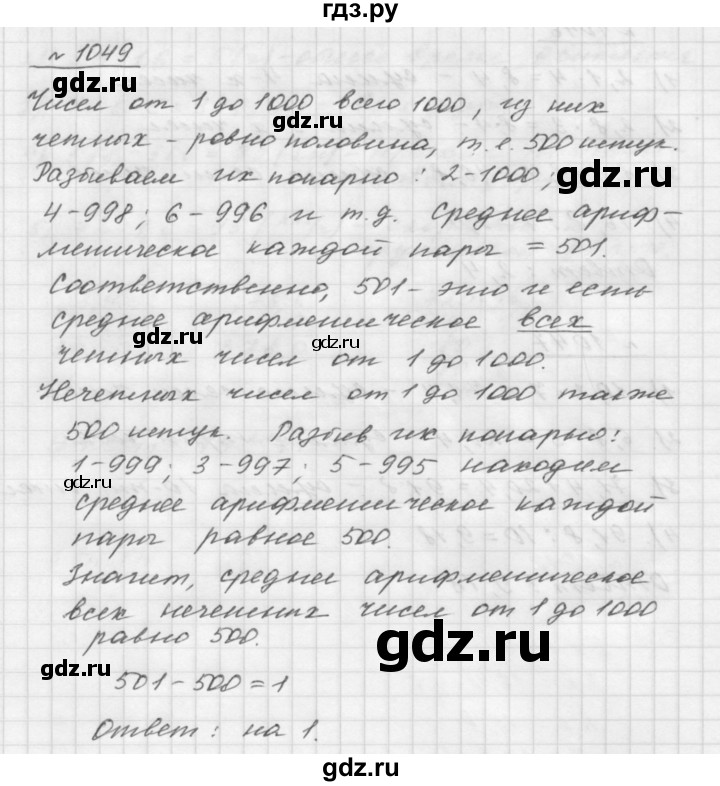 гдз.ру
№ 1049
gdz.ru
Чисел от 1 до 1000 всего 1000, из них
gdz.ru
четных - ровно половина, т. е. 500 штук.
Разбиваем их попарно: 2-1000;
gdz.ru
4-998; 6-996 и т.д. Среднее ариф-
метическое каждой пары = 501.
Соответственно, 501 - это и есть
среднее арифметическое всех
gdz.ru
gdz.ru
четных чисел от 1 до 1000.
Нечетных чисел от 1 до 1000 также
500 штук. Разбив их попарно:
1-999; 3-997; 5-995 находим
gdz.ru
среднее арифметическое каждой
пары равное 500.
Значит, среднее арифметическое
всех нечетных чисел от 1 до 1000
равно 500.
gdz.ru
gdz.ru
501-500=1
Ответ: на 1.
gdz.ru